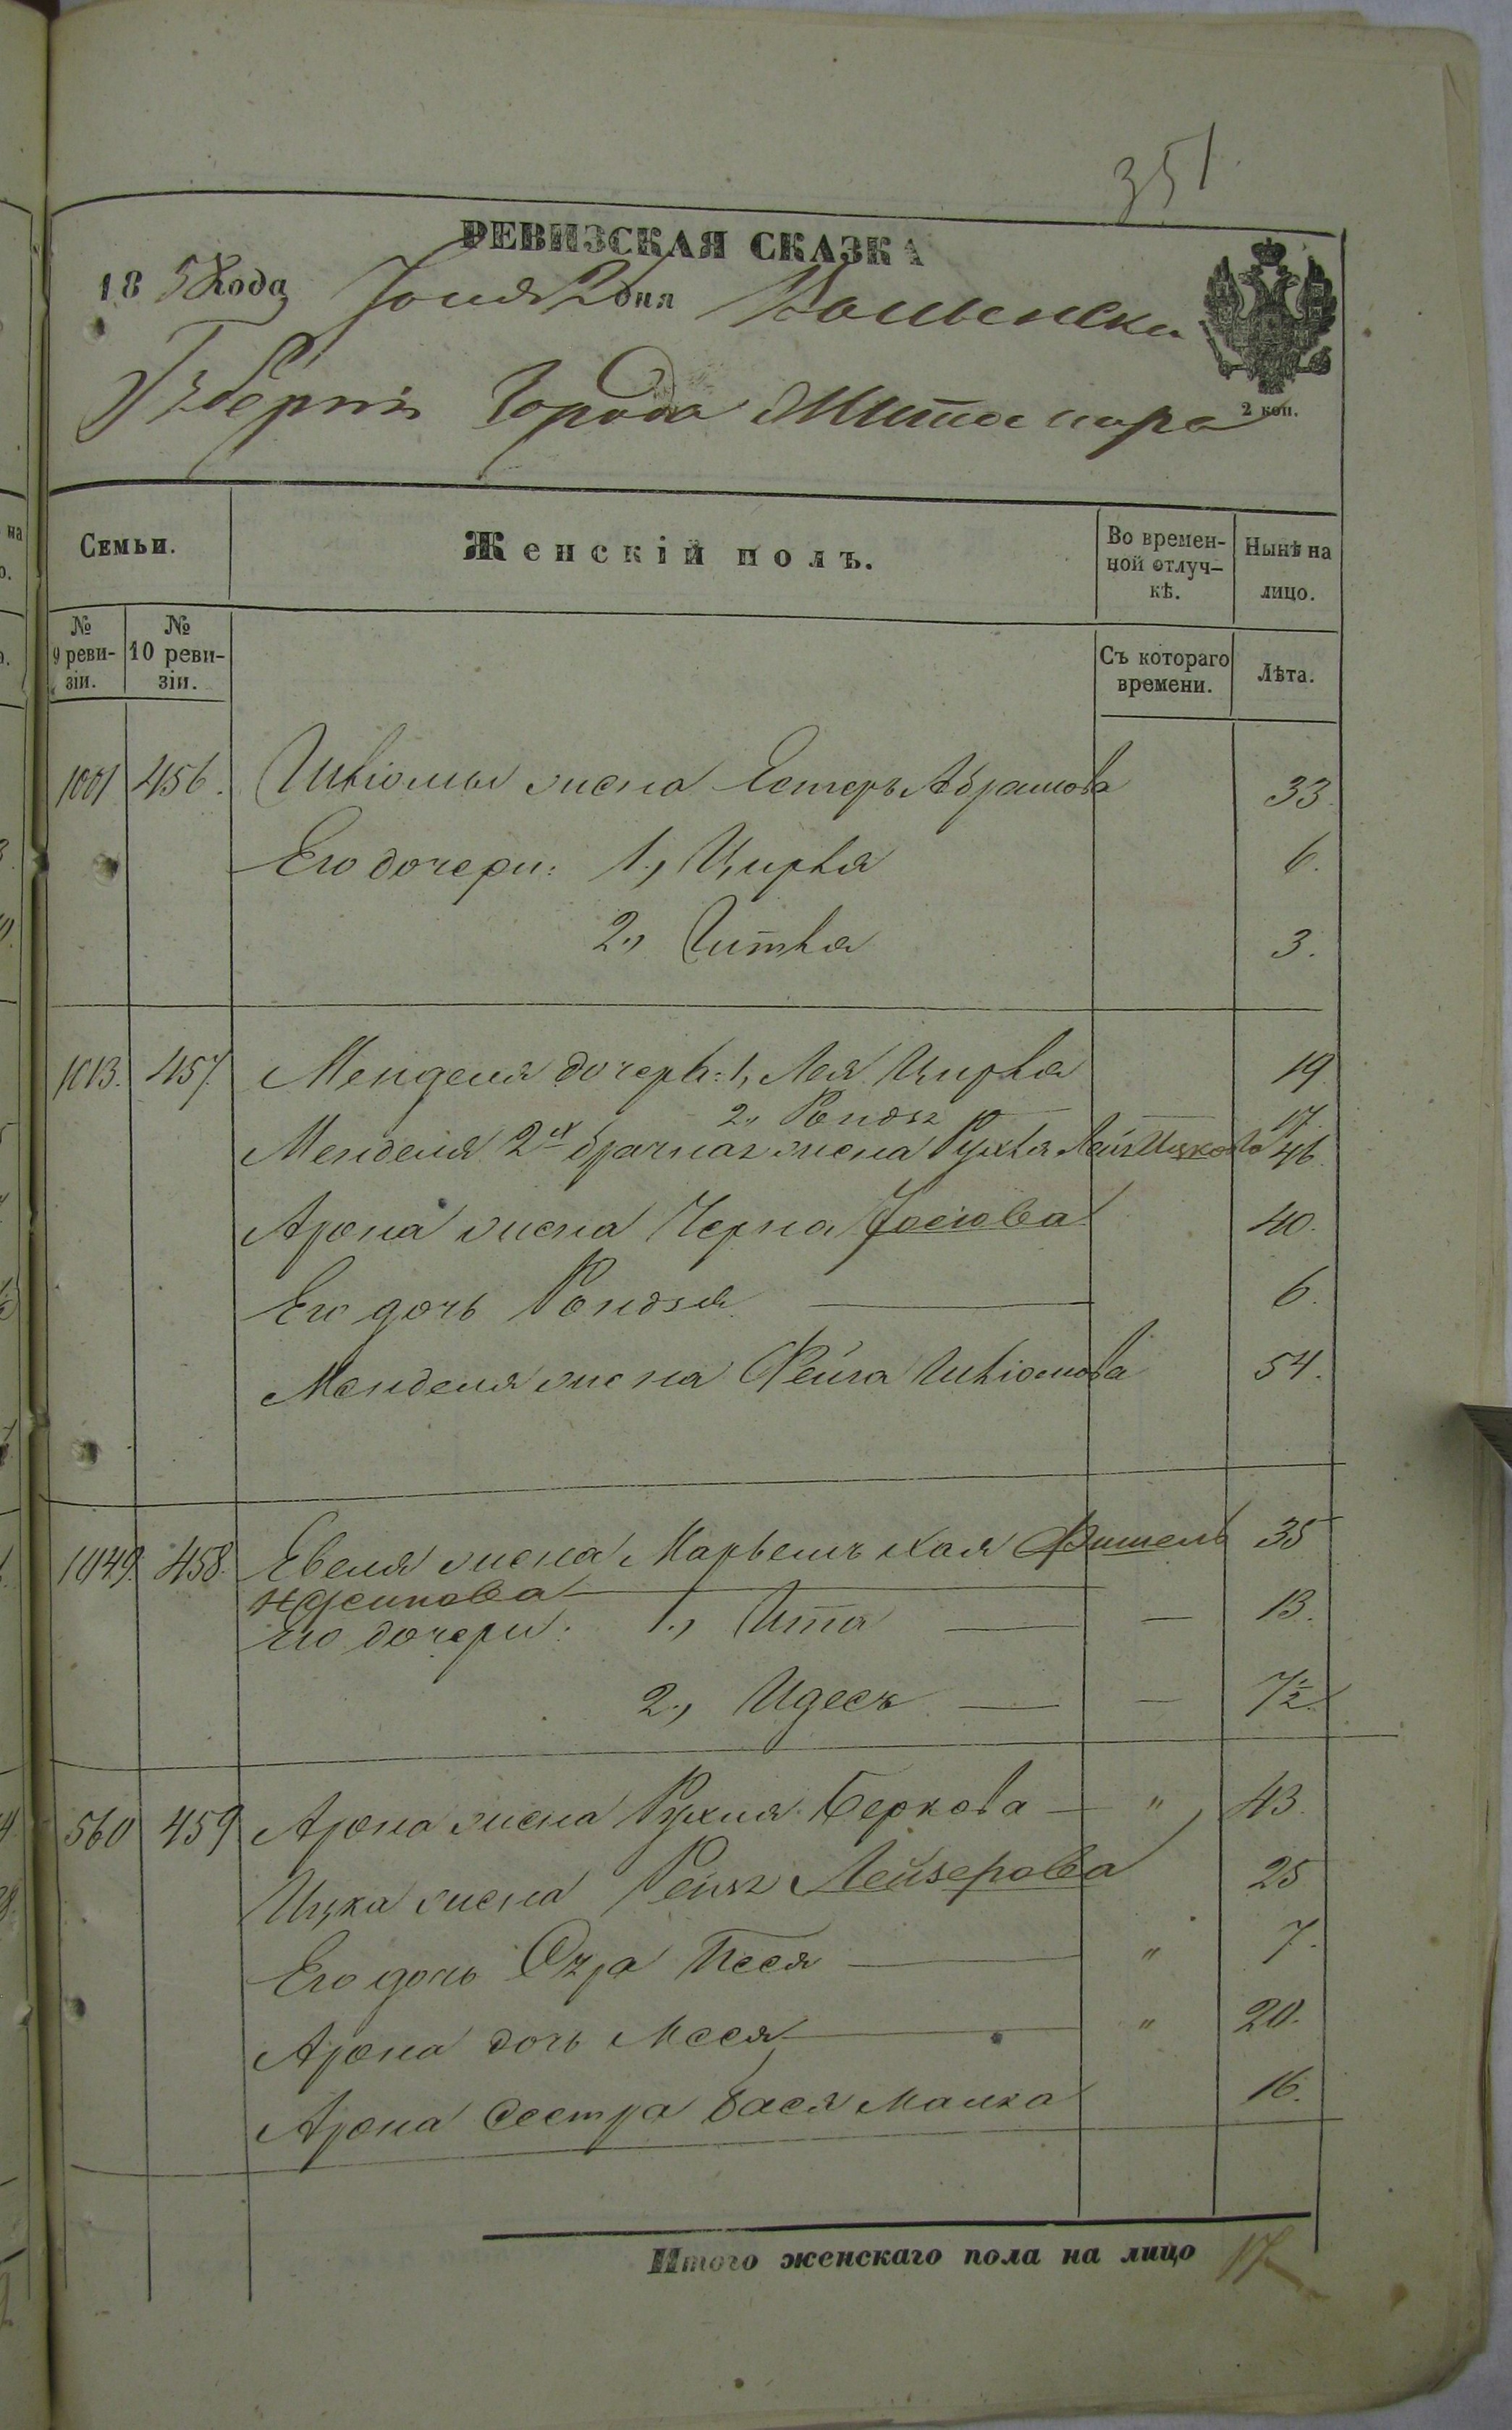 351
РЕВИЗСКАЯ СКАЗКА
1858 года Іюня 2 дня Волынской
Губерніи Города Житомира
2 коп.
Семьи.
Женскій полъ.
Во времен-
ной отлуч-
кѣ.
Нынѣ на
лицо.
№
9 реви-
зіи.
№
10 реви-
зіи.
Съ котораго
времени.
Лѣта.
1001 456. Шліомы жена Естеръ Абрамова 33.
Его дочери: 1., Цирля 6.
2., Гитля 3.
1013. 457. Менделя дочерь: 1, Лея Цирля 19
2., Рейзя 17
Менделя 2х брачная жена Рухля Лея Ицкова 46.
Арона жена Черна Іосіова 40.
Его дочь Рейзя 6.
Менделя жена Фейга Шліомова 54.
1049. 458. Евеля жена Марьемъ Хая Фишель 35
Его дочери: 1., Ита — 13.
2., Идесъ — 7½.
560 459 Арона жена Рухля Беркова " 43.
Ицка жена Рейзя Лейзерова 25
Его дочь Песя " 7.
Арона дочь " 20.
Арона сестра Бася Малка 16.
Итого женскаго пола на лицо 17